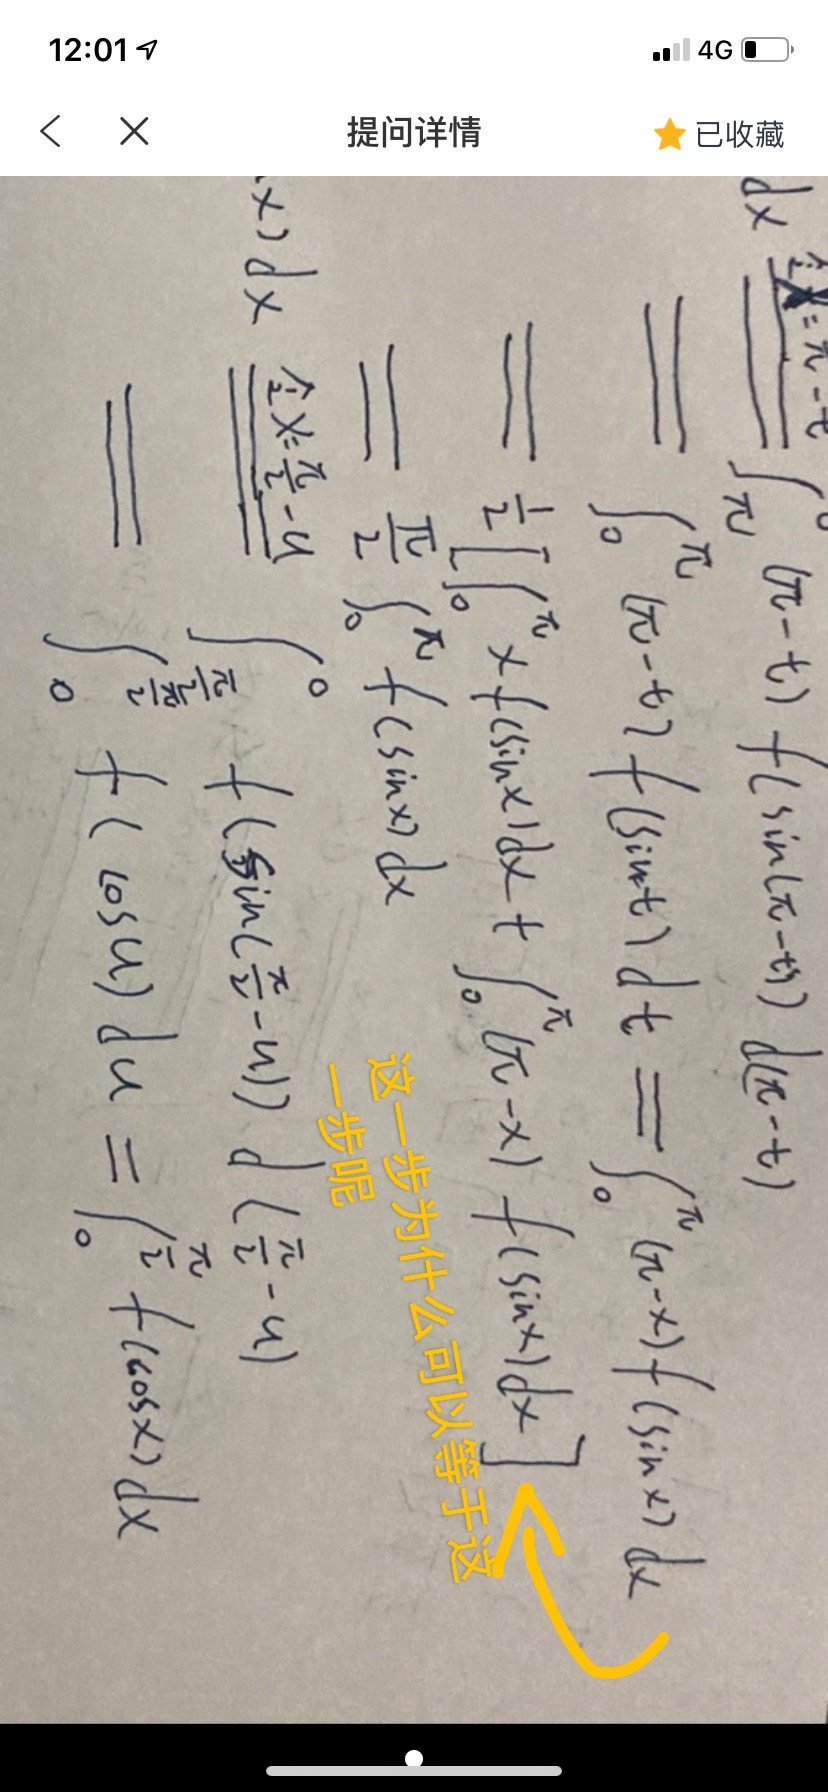 12:01
4G
提问详情
已收藏
dx 令x=π-t ∫_π^0 (π-t) f(sin(π-t)) d(π-t)
= ∫_0^π (π-t) f(sint) dt = ∫_0^π (π-x) f(sinx) dx
= 1/2 [∫_0^π x f(sinx)dx + ∫_0^π (π-x) f(sinx)dx]
= π/2 ∫_0^π f(sinx)dx
x)dx 令x=π/2-u ∫_{π/2}^0 f(sin(π/2-u)) d(π/2-u)
= ∫_0^{π/2} f(cosu)du = ∫_0^{π/2} f(cosx)dx
这一步为什么可以等于这
一步呢